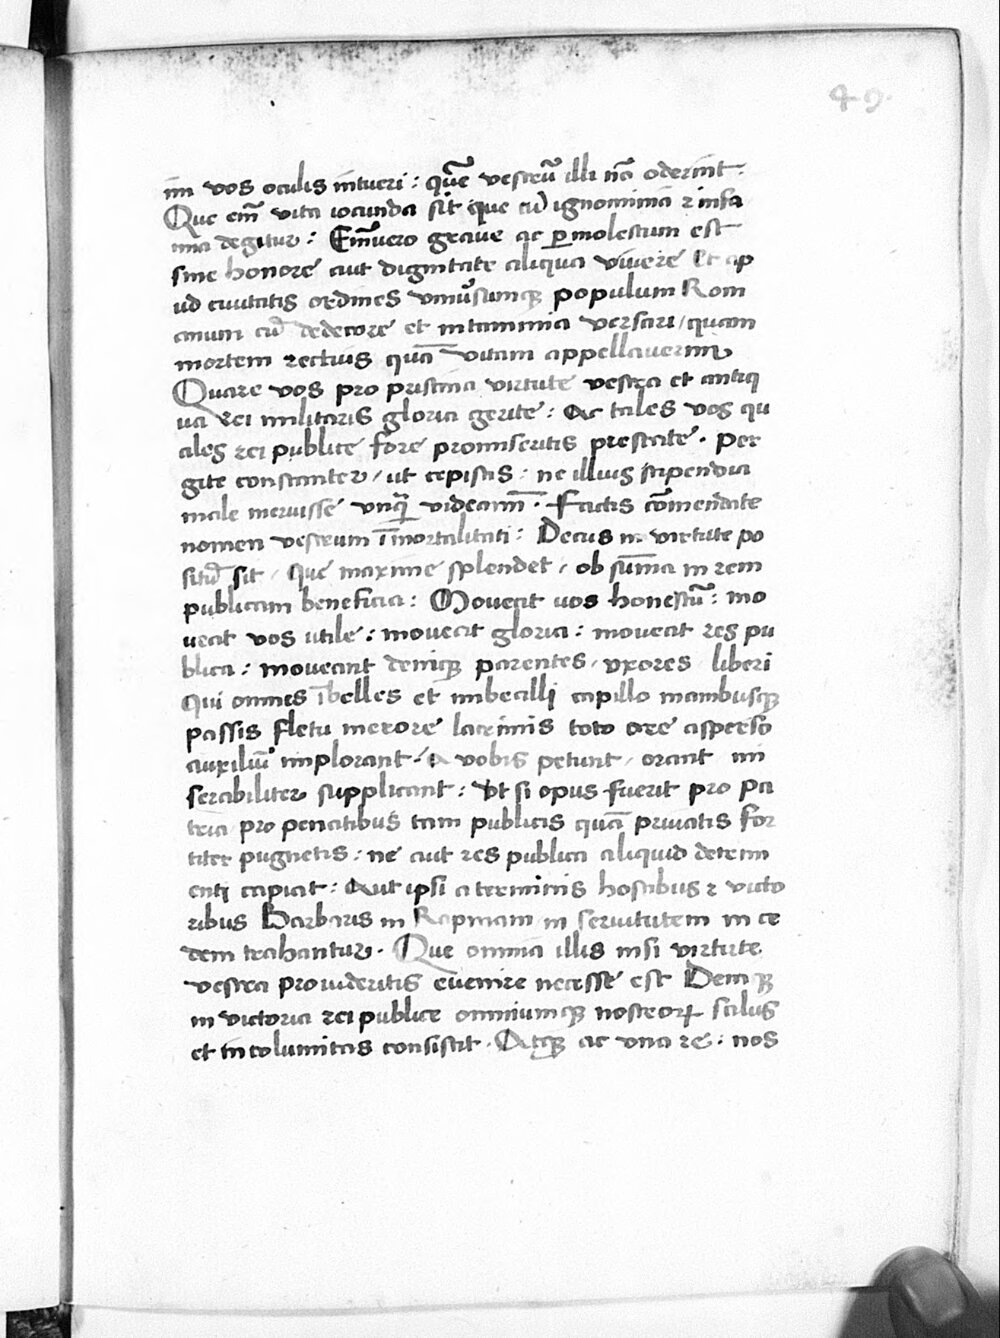 49.
im vos oculis intueri : quē vestrū illi nō oderint .
Que em̄ vita iocunda sit que cū ignominia ⁊ infa
mia degitur : Em̄vero grave ac ꝑmolestum est
sine honore aut dignitate aliqua vivere Et ap
ud civitatis ordines vniūsumqꝫ populum Rom
anum cū dedecore et intaminia versari / quam
mortem rectius quā vitam appellaverim
Quare vos pro pristina virtute vestra et antiq
ua rei militaris gloria gerite : Ac tales vos qu
ales rei publice fore promiseritis prestate . Per
gite constanter / ut cepistis : ne illius stipendia
male meruisse vnq̄ videamī . Factis cōmendate
nomen vestrum īmortalitati : Decus in virtute po
sitū sit / Que maxime splendet / ob sūma in rem
publicam beneficia : Moveat vos honestū : mo
veat vos utile : moveat gloria : moveat res pu
blica : moveant deniqꝫ parentes / vxores / liberi
Qui omnes ībelles et imbecilli capillo manibusqꝫ
passis fletu merore lacrimis toto ore asperso
auxiliū implorant / A vobis petunt / orant mi
serabiliter supplicant : Vt si opus fuerit pro pa
tria pro penatibus tam publicis quā privatis for
titer pugnetis : ne aut res publica aliquid detrim
enti capiat : Aut ipsi a terminis hostibus ⁊ victo
ribus Barbaris in Rapinam in servitutem in ce
dem trahantur . Que omnia illis nisi virtute
vestra provideritis evenire necesse est Deniqꝫ
in victoria rei publice omniumqꝫ nostroꝝ salus
et incolumitas consistit . Atqꝫ ac vna re : nos